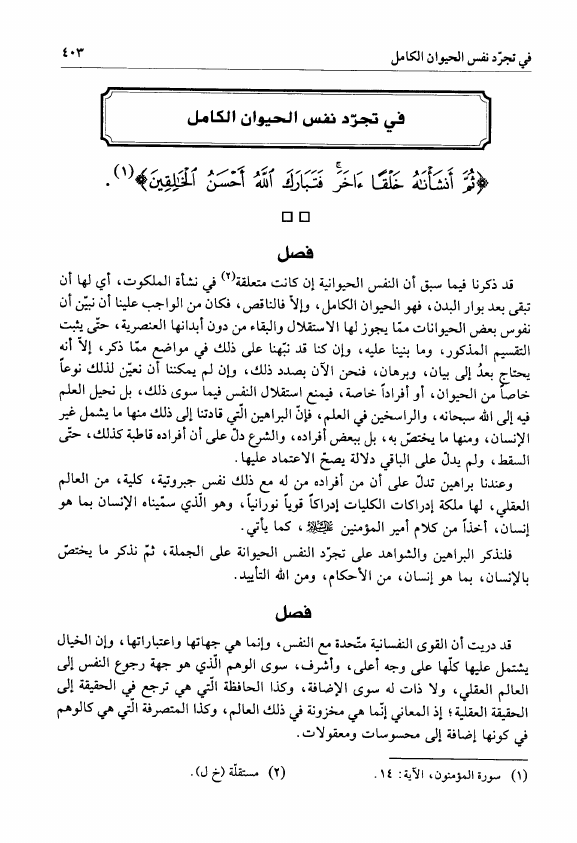 في تجرّد نفس الحيوان الكامل ٤٠٣
في تجرّد نفس الحيوان الكامل
﴿ثُمَّ أَنشَأْنَاهُ خَلْقًا ءَاخَرَ ۚ فَتَبَارَكَ اللَّهُ أَحْسَنُ الْخَالِقِينَ﴾(١).
فصل
قد ذكرنا فيما سبق أن النفس الحيوانية إن كانت متعلقة(٢) في نشأة الملكوت، أي لها أن
تبقى بعد بوار البدن، فهو الحيوان الكامل، وإلاّ فالناقص، فكان من الواجب علينا أن نبيّن أن
نفوس بعض الحيوانات ممّا يجوز لها الاستقلال والبقاء من دون أبدانها العنصرية، حتّى يثبت
التقسيم المذكور، وما بنينا عليه، وإن كنا قد نبّهنا على ذلك في مواضع ممّا ذكر، إلاّ أنه
يحتاج بعدُ إلى بيان، وبرهان، فنحن الآن بصدد ذلك، وإن لم يمكننا أن نعيّن لذلك نوعاً
خاصاً من الحيوان، أو أفراداً خاصة، فيمنع استقلال النفس فيما سوى ذلك، بل نحيل العلم
فيه إلى الله سبحانه، والراسخين في العلم، فإنّ البراهين الّتي قادتنا إلى ذلك منها ما يشمل غير
الإنسان، ومنها ما يختصّ به، بل ببعض أفراده، والشرع دلّ على أن أفراده قاطبة كذلك، حتّى
السقط، ولم يدلّ على الباقي دلالة يصحّ الاعتماد عليها.
وعندنا براهين تدلّ على أن من أفراده من له مع ذلك نفس جبروتية، كلية، من العالم
العقلي، لها ملكة إدراكات الكليات إدراكاً قوياً نورانياً، وهو الّذي سمّيناه الإنسان بما هو
إنسان، أخذاً من كلام أمير المؤمنين ، كما يأتي.
فلنذكر البراهين والشواهد على تجرّد النفس الحيوانة على الجملة، ثمّ نذكر ما يختصّ
بالإنسان، بما هو إنسان، من الأحكام، ومن الله التأييد.
فصل
قد دريت أن القوى النفسانية متّحدة مع النفس، وإنما هي جهاتها واعتباراتها، وإن الخيال
يشتمل عليها كلّها على وجه أعلى، وأشرف، سوى الوهم الّذي هو جهة رجوع النفس إلى
العالم العقلي، ولا ذات له سوى الإضافة، وكذا الحافظة الّتي هي ترجع في الحقيقة إلى
الحقيقة العقلية؛ إذ المعاني إنّما هي مخزونة في ذلك العالم، وكذا المتصرفة الّتي هي كالوهم
في كونها إضافة إلى محسوسات ومعقولات.
(١) سورة المؤمنون، الآية: ١٤. (٢) مستقلّة (خ ل).